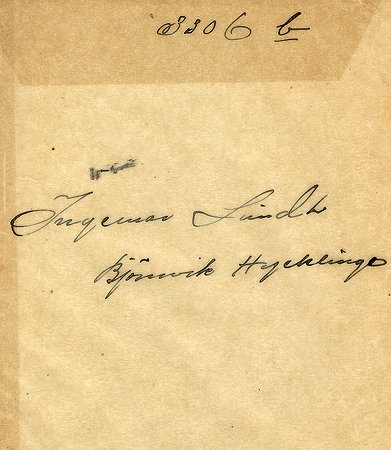 3306 b
Ingemar Lindh
Björnvik Hycklinge